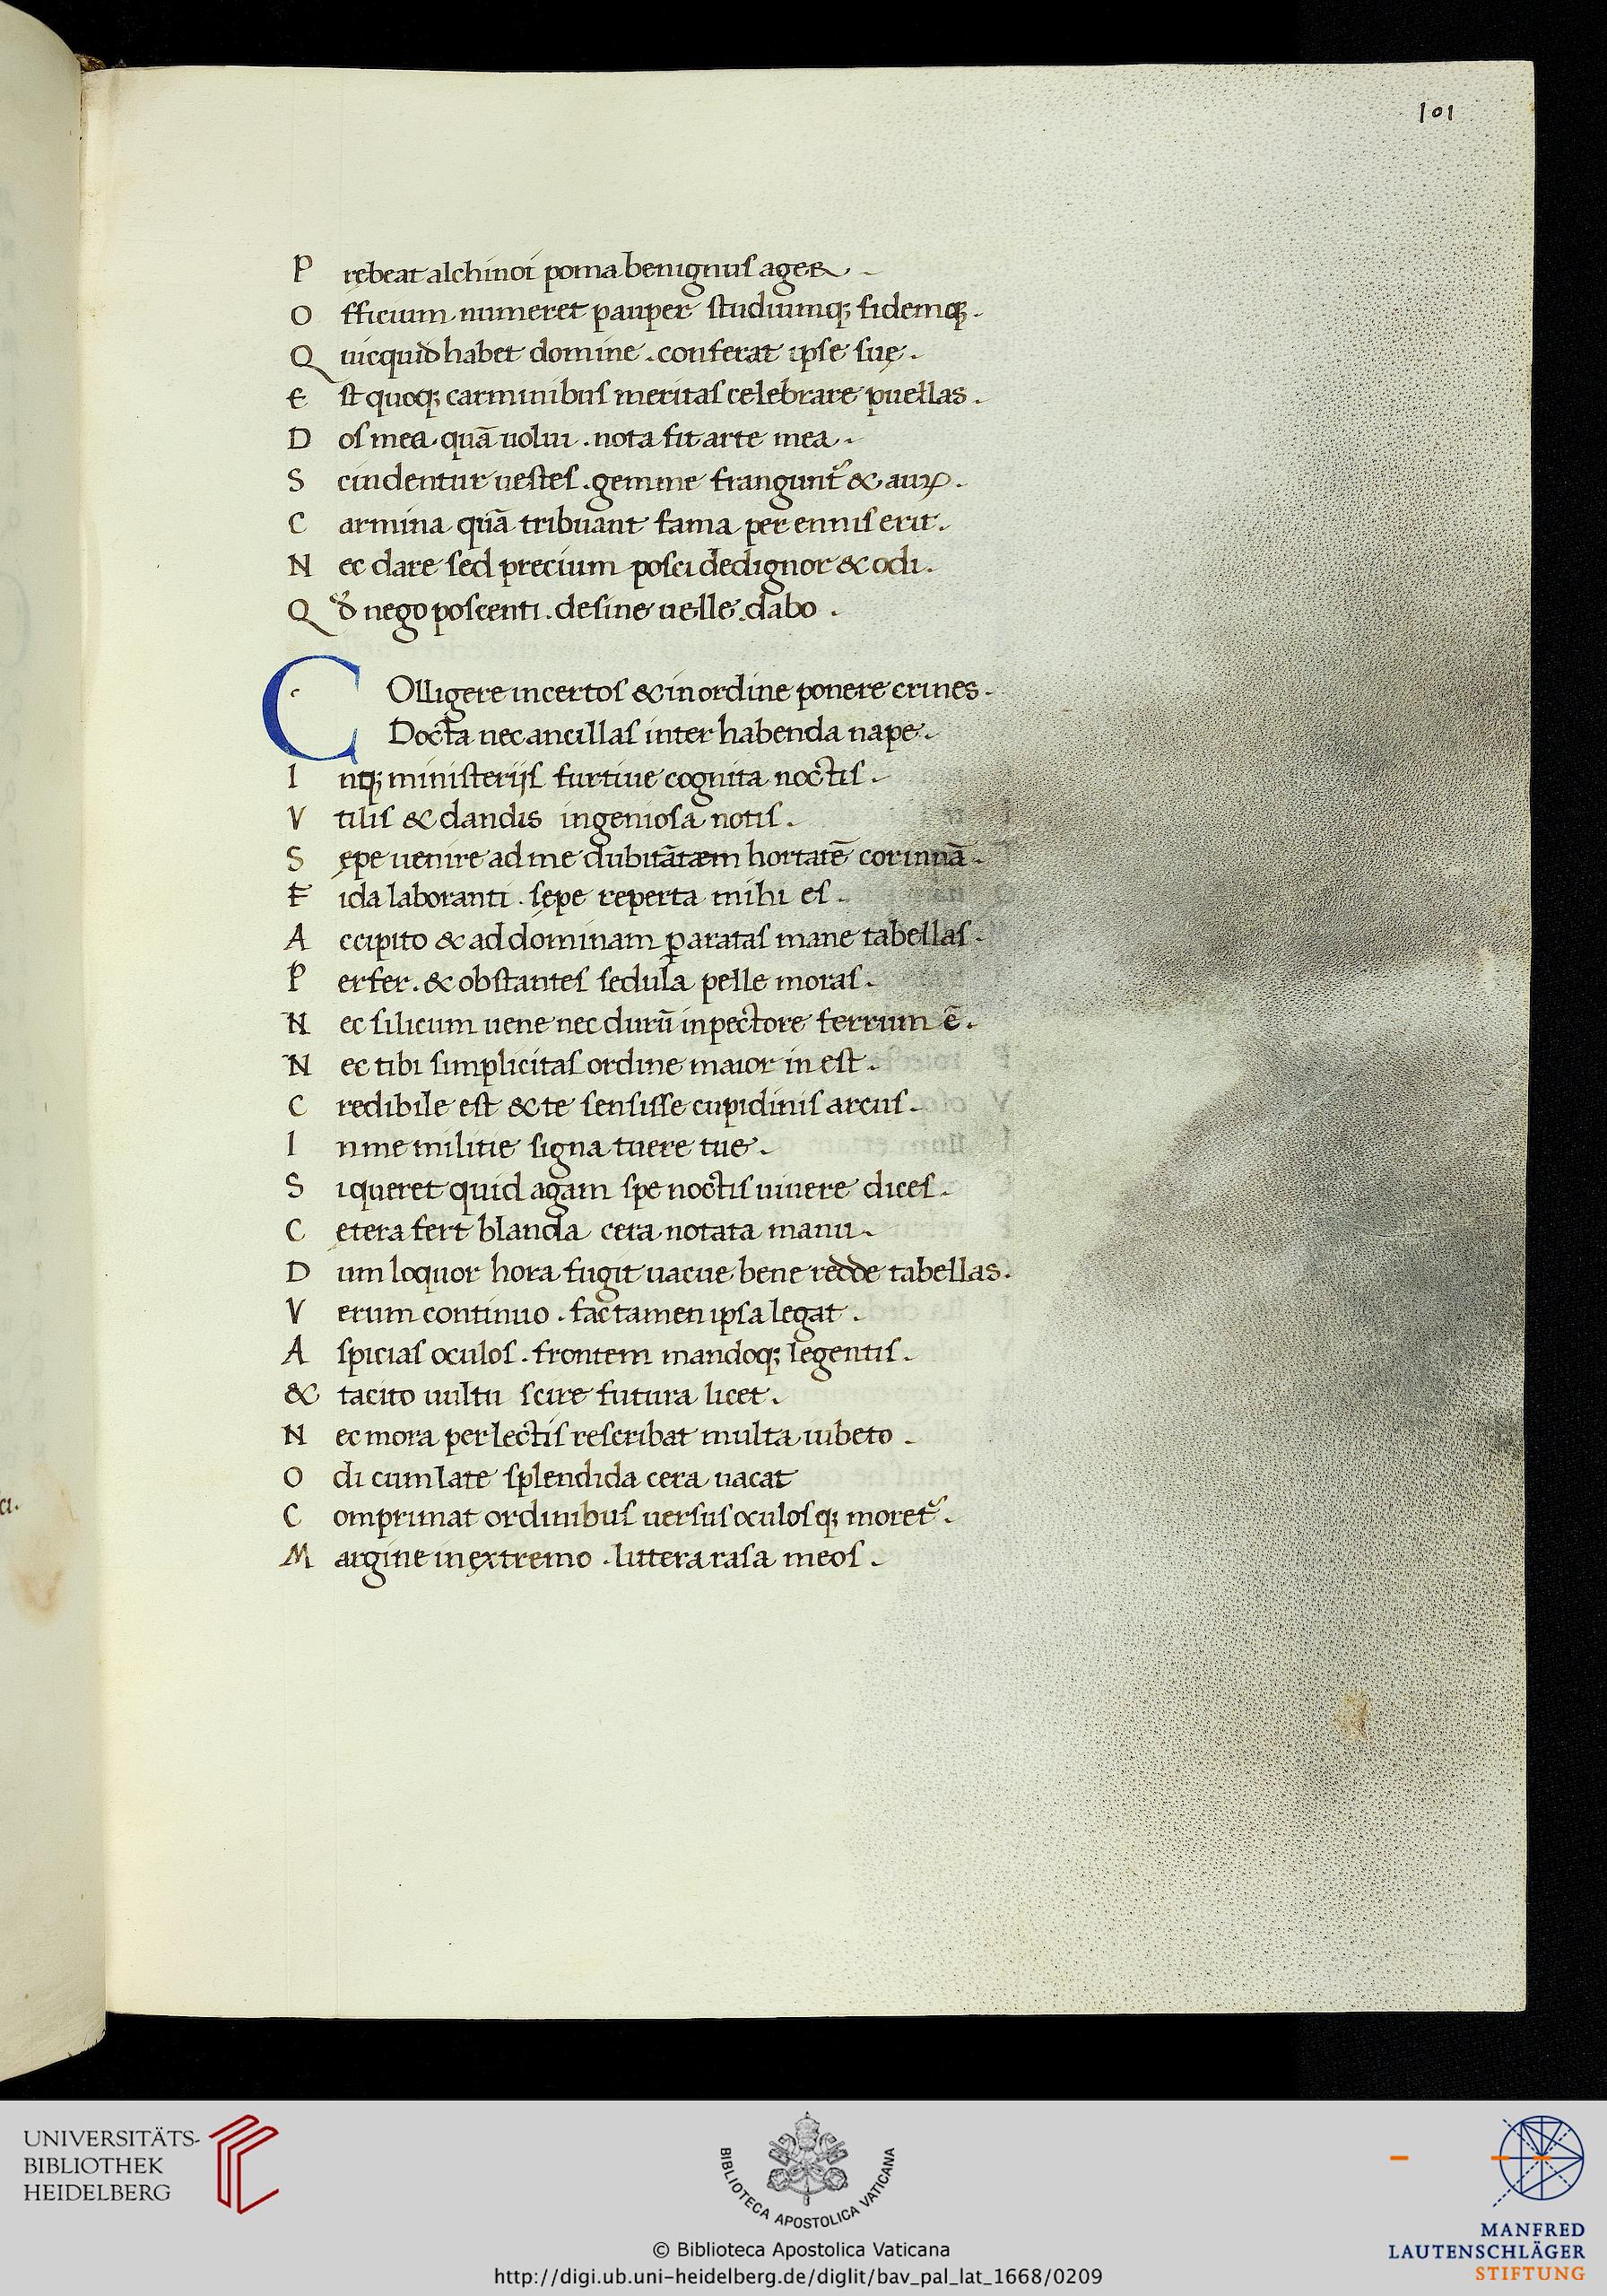 101
P rębeat alchinoi poma benignus ager .
O fficium numeret pauper studiumq; fidemq; .
Q uicquid habet domine . conferat ipse suę .
E st quoq; carminibus meritas celebrare puellas .
D os mea quā uolui . nota fit arte mea .
S cindentur uestes . gemme frangunt᷑ & aurꝫ .
C armina quā tribuant fama per ennis erit .
N ec dare sed precium posci dedignor & odi .
Q ď nego poscenti . desine uelle dabo .
C Olligere incertos & in ordine ponere crines .
Docta nec ancillas inter habenda nape .
I nq; ministerijs furtiue cognita noctis .
V tilis & dandis ingeniosa notis .
S ępe uenire ad me dubitātem hortatē corinnā .
F ida laboranti . sępe reperta mihi es .
A ccipito & ad dominam ꝑaratas mane tabellas .
P erfer . & obstantes sedula pelle moras .
N ec silicum uene nec durū in pectore ferrum ē .
N ec tibi simplicitas ordine maior in est .
C redibile est & te sensisse cupidinis arcus .
I n me militie signa tuere tue .
S i queret quid agam spe noctis uiuere dices .
C etera fert blanda cera notata manu .
D um loquor hora fugit uacue bene redde tabellas .
V erum continuo . fac tamen ipsa legat .
A spicias oculos . frontem mandoq; legentis .
& tacito uultu scire futura licet .
N ec mora perlectis rescribat multa iubeto .
O di cum late splendida cera uacat
C omprimat ordinibus uersus oculosq; moret᷑ .
M argine in extremo . littera rasa meos .
UNIVERSITÄTS-
BIBLIOTHEK
HEIDELBERG
BIBLIOTECA APOSTOLICA VATICANA
© Biblioteca Apostolica Vaticana
http://digi.ub.uni-heidelberg.de/diglit/bav_pal_lat_1668/0209
MANFRED
LAUTENSCHLÄGER
STIFTUNG